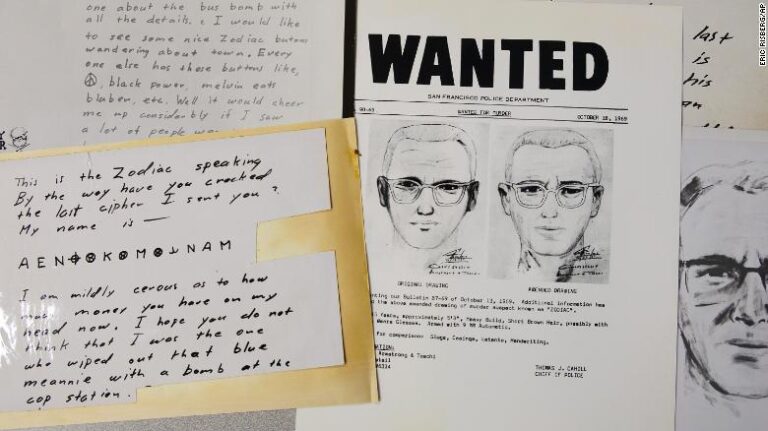 one about the bus bomb with
all the details. I would like
to see some nice Zodiac butons
wandering about town. Every
one else has these buttons like,
black power, melvin eats
bluber, etc. Well it would cheer
me up considerbly if I saw
a lot of people
This is the Zodiac speaking
By the way have you cracked
the last cipher I sent you ?
My name is —
A E N ⌖ ⊗ K ⊗ M ⊗ ⅃ N A M
I am mildly cerous as to how
much money you have on my
head now. I hope you do not
think that I was the one
who wiped out that blue
meannie with a bomb at the
cop station.
WANTED
SAN FRANCISCO POLICE DEPARTMENT
90-69 WANTED FOR MURDER OCTOBER 18, 1969
ORIGINAL DRAWING AMENDED DRAWING
our Bulletin 87-69 of October 13, 1969. Additional information has
the above amended drawing of murder suspect known as "ZODIAC".
approximately 5'8", Heavy Build, Short Brown Hair, possibly with
Glasses. Armed with 9 MM Automatic.
for comparison: Slugs, Casings, Latents, Handwriting.
Armstrong & Toschi
THOMAS J. CAHILL
CHIEF OF POLICE
last
is
his
ERIC RISBERG/AP